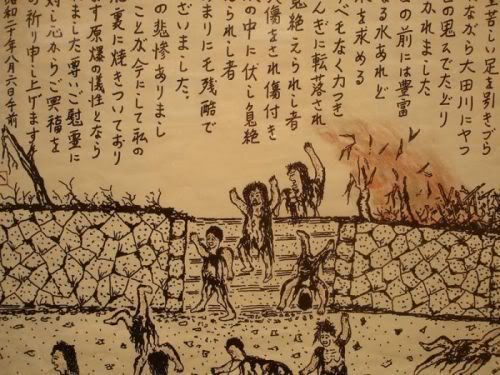 苦しい足を引きづら
ながら大田川にやつ
の思いでたどり
かれました
の前には豊富
なる水あれど
水を求める
べもなく力つき
んぎに転落され
息絶えられし者
傷をされ傷付き
の中に伏し息絶
えられし者
まりにも残酷で
ざいました。
の悲惨ありまし
ことが今にして私の
脳裏に焼きついており
ます原爆の犠牲となら
れました尊いご慰霊に
対し心からご冥福を
祈り申し上げます
昭和二十年八月六日午前